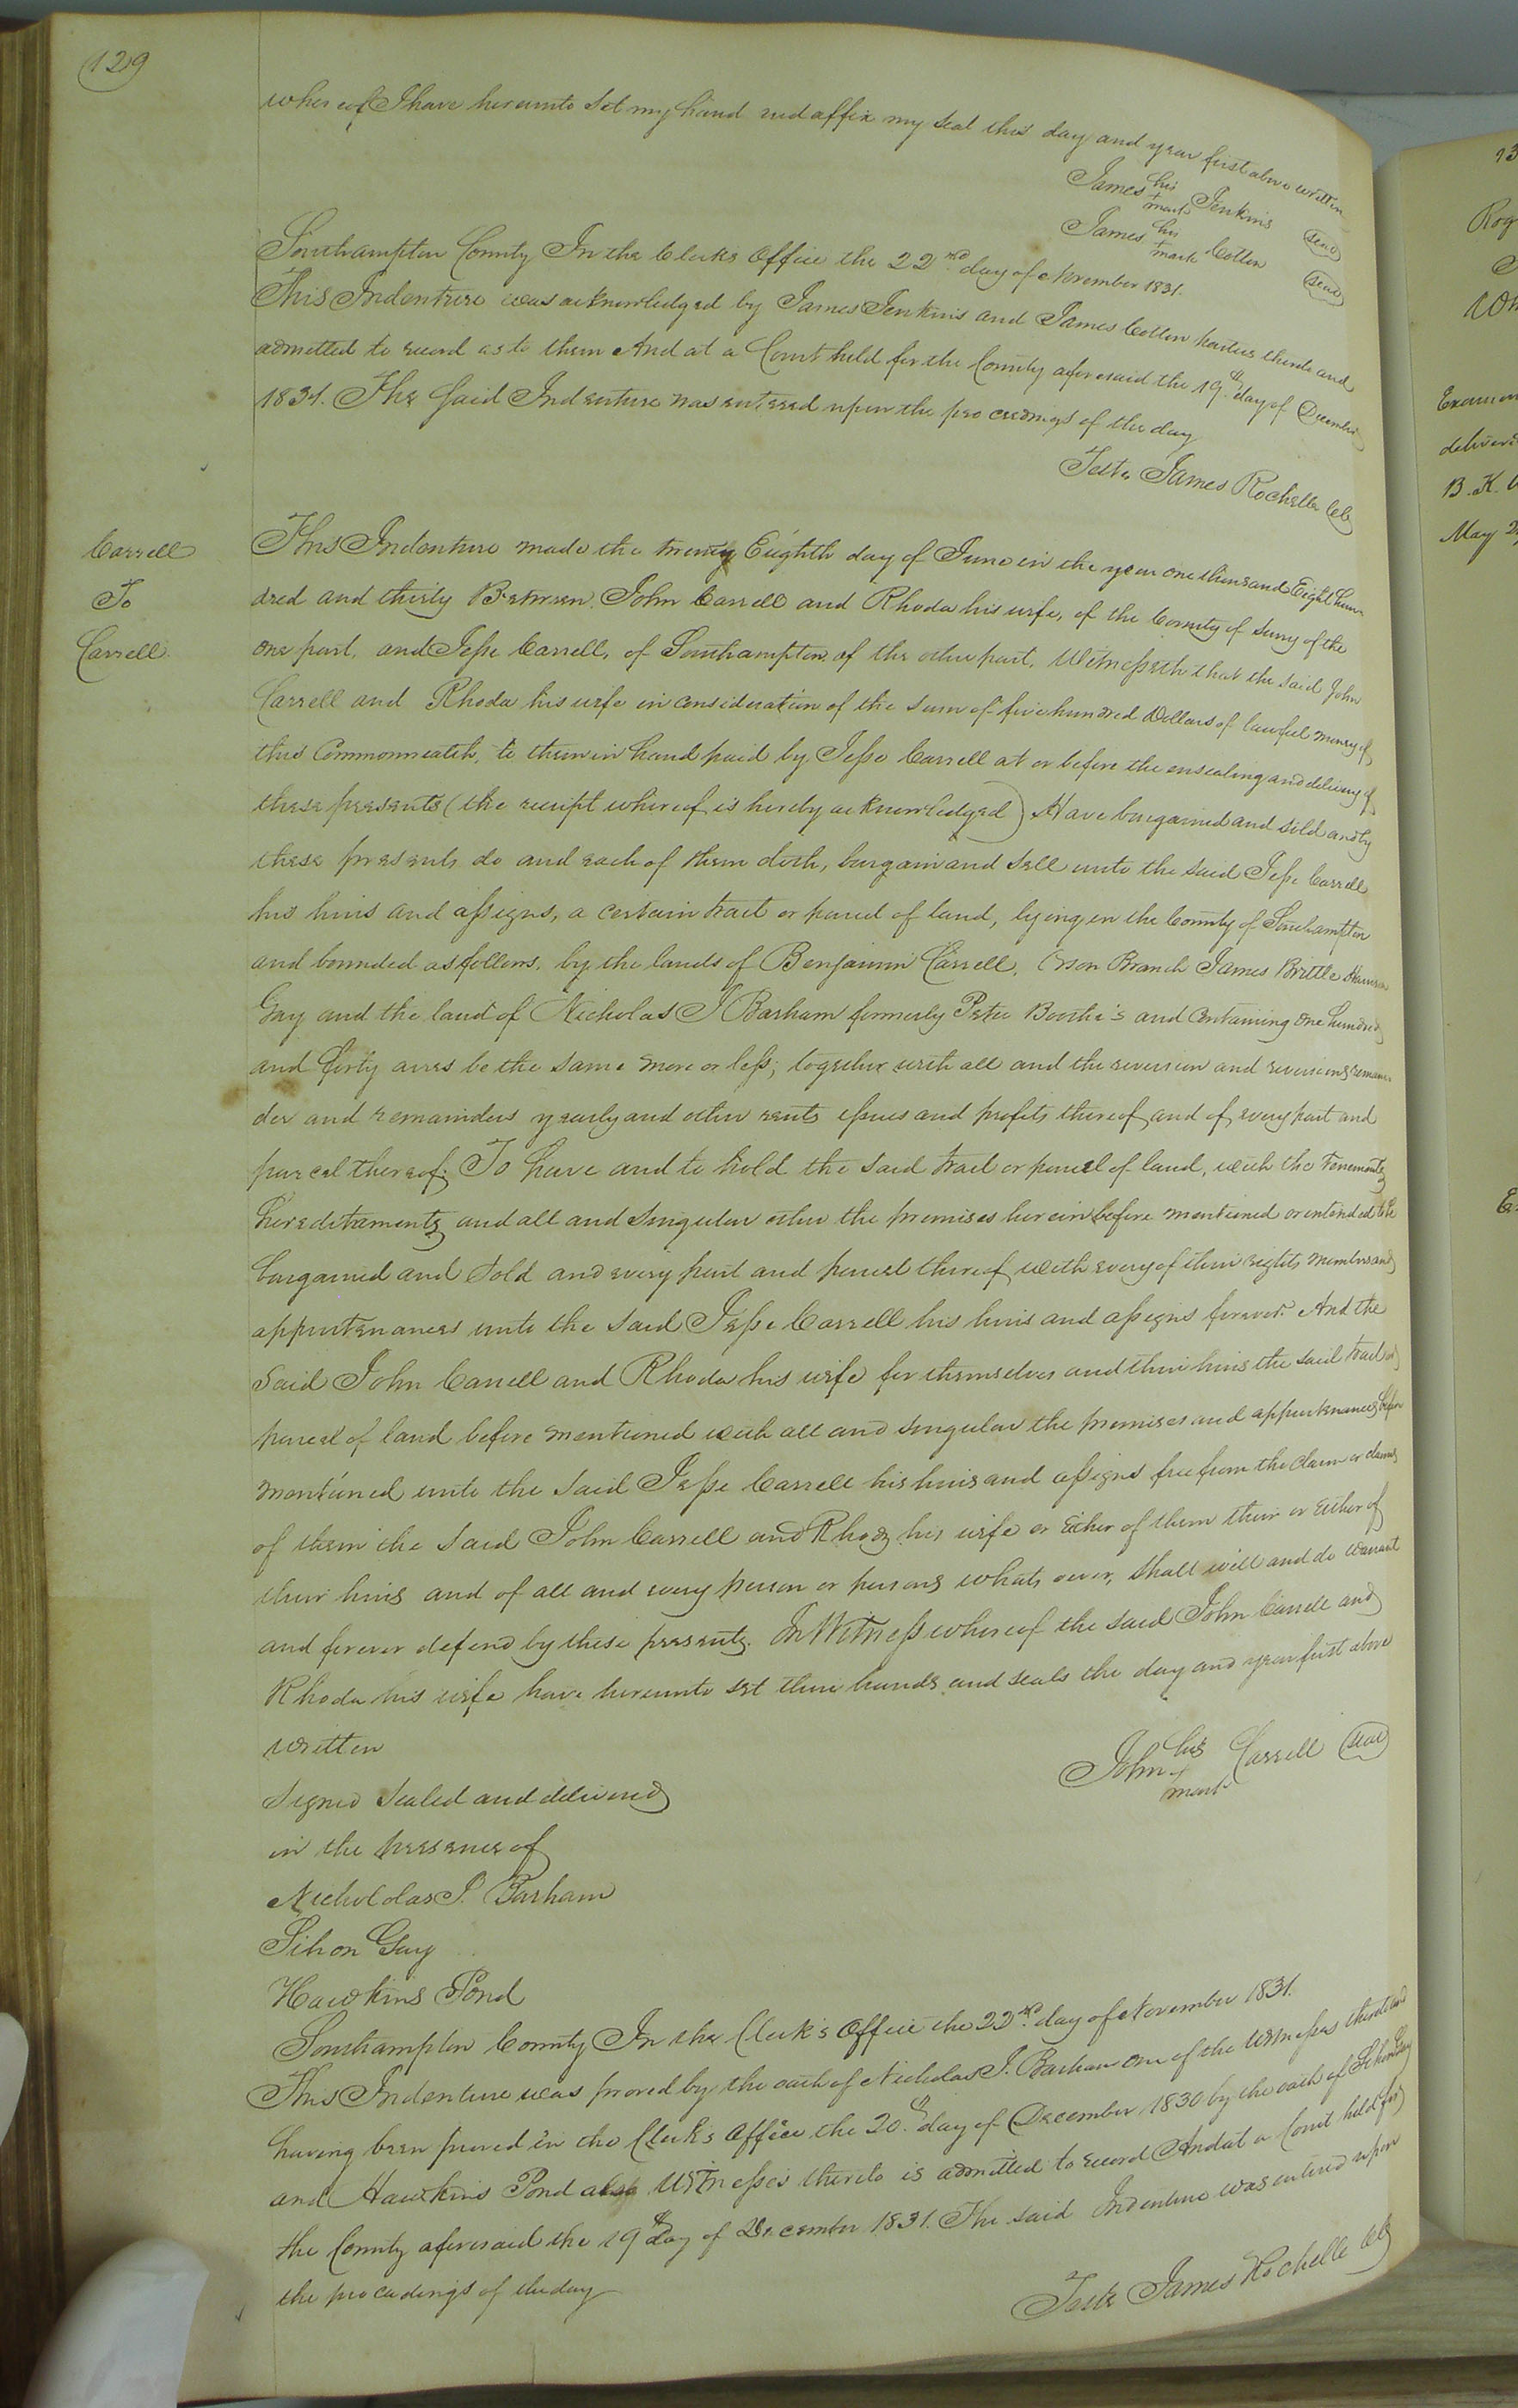 129
whereof I have hereunto set my hand and affix my seal this day and year first above written
James his Jenkins seal
mark
James his Cotten seal
mark
Southampton County In the Clerks Office the 22nd day of November 1831.
This Indenture was acknowledged by James Jenkins and James Cotten parties thereto and
admitted to record as to them And at a Court held for the County aforesaid the 19th day of December
1831. The Said Indenture was entered upon the proceedings of the day
Teste James Rochelle Clk
Carrell
To
Carrell
This Indenture made the twenty Eighth day of June in the year one thousand Eight hun-
dred and thirty Between John Carrell and Rhoda his wife, of the County of Surry of the
one part, and Jesse Carrell, of Southampton of the other part. Witnesseth that the said John
Carrell and Rhoda his wife in consideration of the sum of five hundred Dollars of lawful money of
this Commonwealth, to them in hand paid by Jesse Carrell at or before the ensealing and delivery of
these presents (the receipt whereof is hereby acknowledged) Have bargained and sold and by
these presents do and each of them doth, bargain and sell unto the said Jesse Carrell
his heirs and assigns, a certain tract or parcel of land, lying in the County of Southampton
and bounded as follows, by the lands of Benjamin Carrell, Branch James Brittle
Gay and the land of Nicholas J Barham formerly Peter Booth's and containing one hundred
and forty acres be the same more or less; together with all and the reversion and reversions remain-
der and remainders yearly and other rents issues and profits thereof and of every part and
parcel thereof. To have and to hold the said tract or parcel of land, with the tenements
hereditaments and all and singular other the premises herein before mentioned or intended to be
bargained and sold and every part and parcel thereof with every of their rights members and
appurtenances unto the said Jesse Carrell his heirs and assigns forever. And the
said John Carrell and Rhoda his wife for themselves and their heirs the said tract or
parcel of land before mentioned with all and singular the premises and appurtenances before
mentioned unto the said Jesse Carrell his heirs and assigns free from the claim or claims
of them the said John Carrell and Rhoda his wife or Either of them their or Either of
their heirs and of all and every person or persons whats oever, shall will and do warrant
and forever defend by these presents. In Witness whereof the said John Carrell and
Rhoda his wife have hereunto set their hands and seals the day and year first above
written
John his Carrell seal
mark
Signed Sealed and delivered
in the presence of
Nicholas J. Barham
Sihon Gay
Hawkins Pond
Southampton County In the Clerk's Office the 22nd day of November 1831.
This Indenture was proved by the oath of Nicholas J. Barham one of the witnesses thereto and
having been proved in the Clerk's Office the 20th day of December 1830 by the oath of Sihon Gay
and Hawkins Pond also Witnesses thereto is admitted to record And at a Court held for
the County aforesaid the 19th day of December 1831. The said Indenture was entered upon
the proceedings of the day
Teste James Rochelle Clk
13
Rog
Examin
deliver
B. K.
May 2